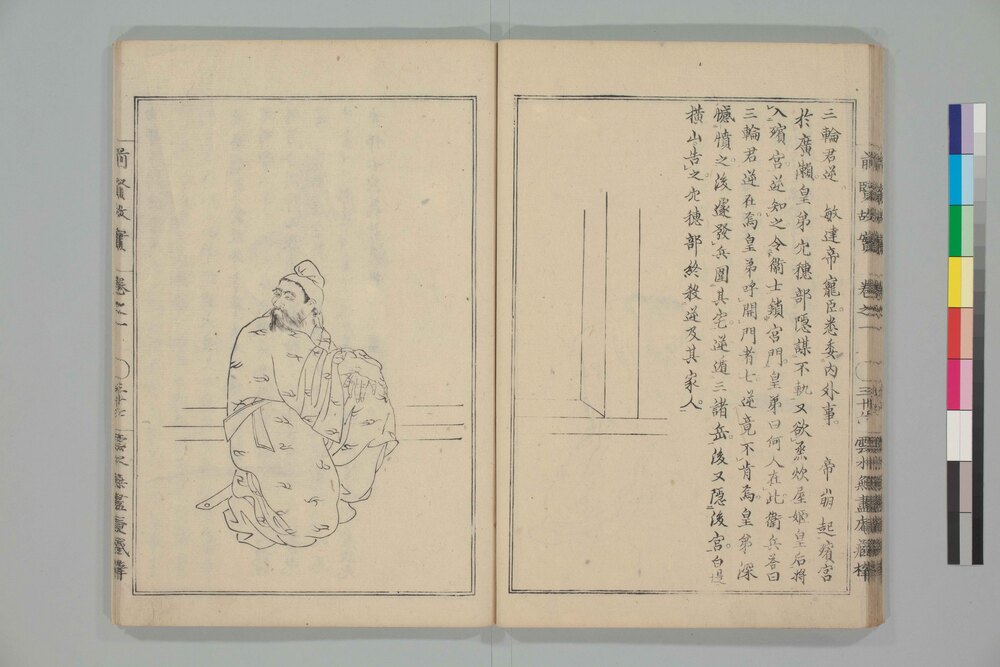 三輪君逆 敏達帝寵臣悉委內外事 帝崩起殯宮
於廣瀨皇弟穴穗部隱謀不軌又欲烝炊屋姬皇后將
入殯宮逆知之令衛士鎖宮門皇弟曰何人在此衛兵答曰
三輪君逆在焉皇弟呼開門者七逆竟不肯焉皇弟深
憾憤之後遂發兵圍其宅逆遁三諸岳後又隱後宮白堤
橫山告之穴穗部終殺逆及其家人
前賢故實 卷之一
雲水無盡庵藏梓
前賢故實 卷之一